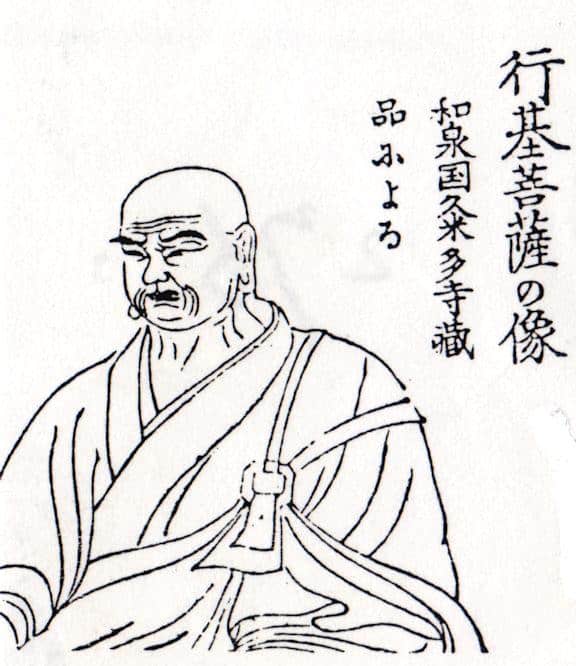 行基菩薩の像
和泉国久米多寺蔵
品による